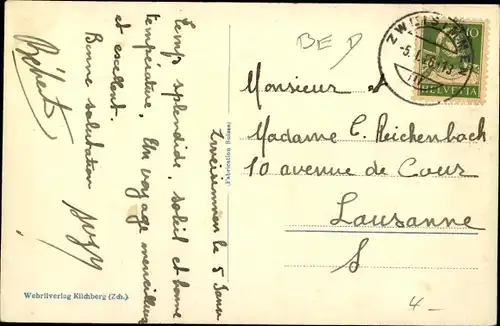 Zweisimmen le 5 Janv
Temps splendide, soleil et bonne
température. Un voyage merveilleux
et excellent.
Bonne salutation
Suzy
Bébert
BE
ZWEISIMMEN
10
HELVETIA
Monsieur et
Madame C. Reichenbach
10 avenue de Cour
Lausanne
Fabrication Suisse
Wehrliverlag Kilchberg (Zch.)
4 -